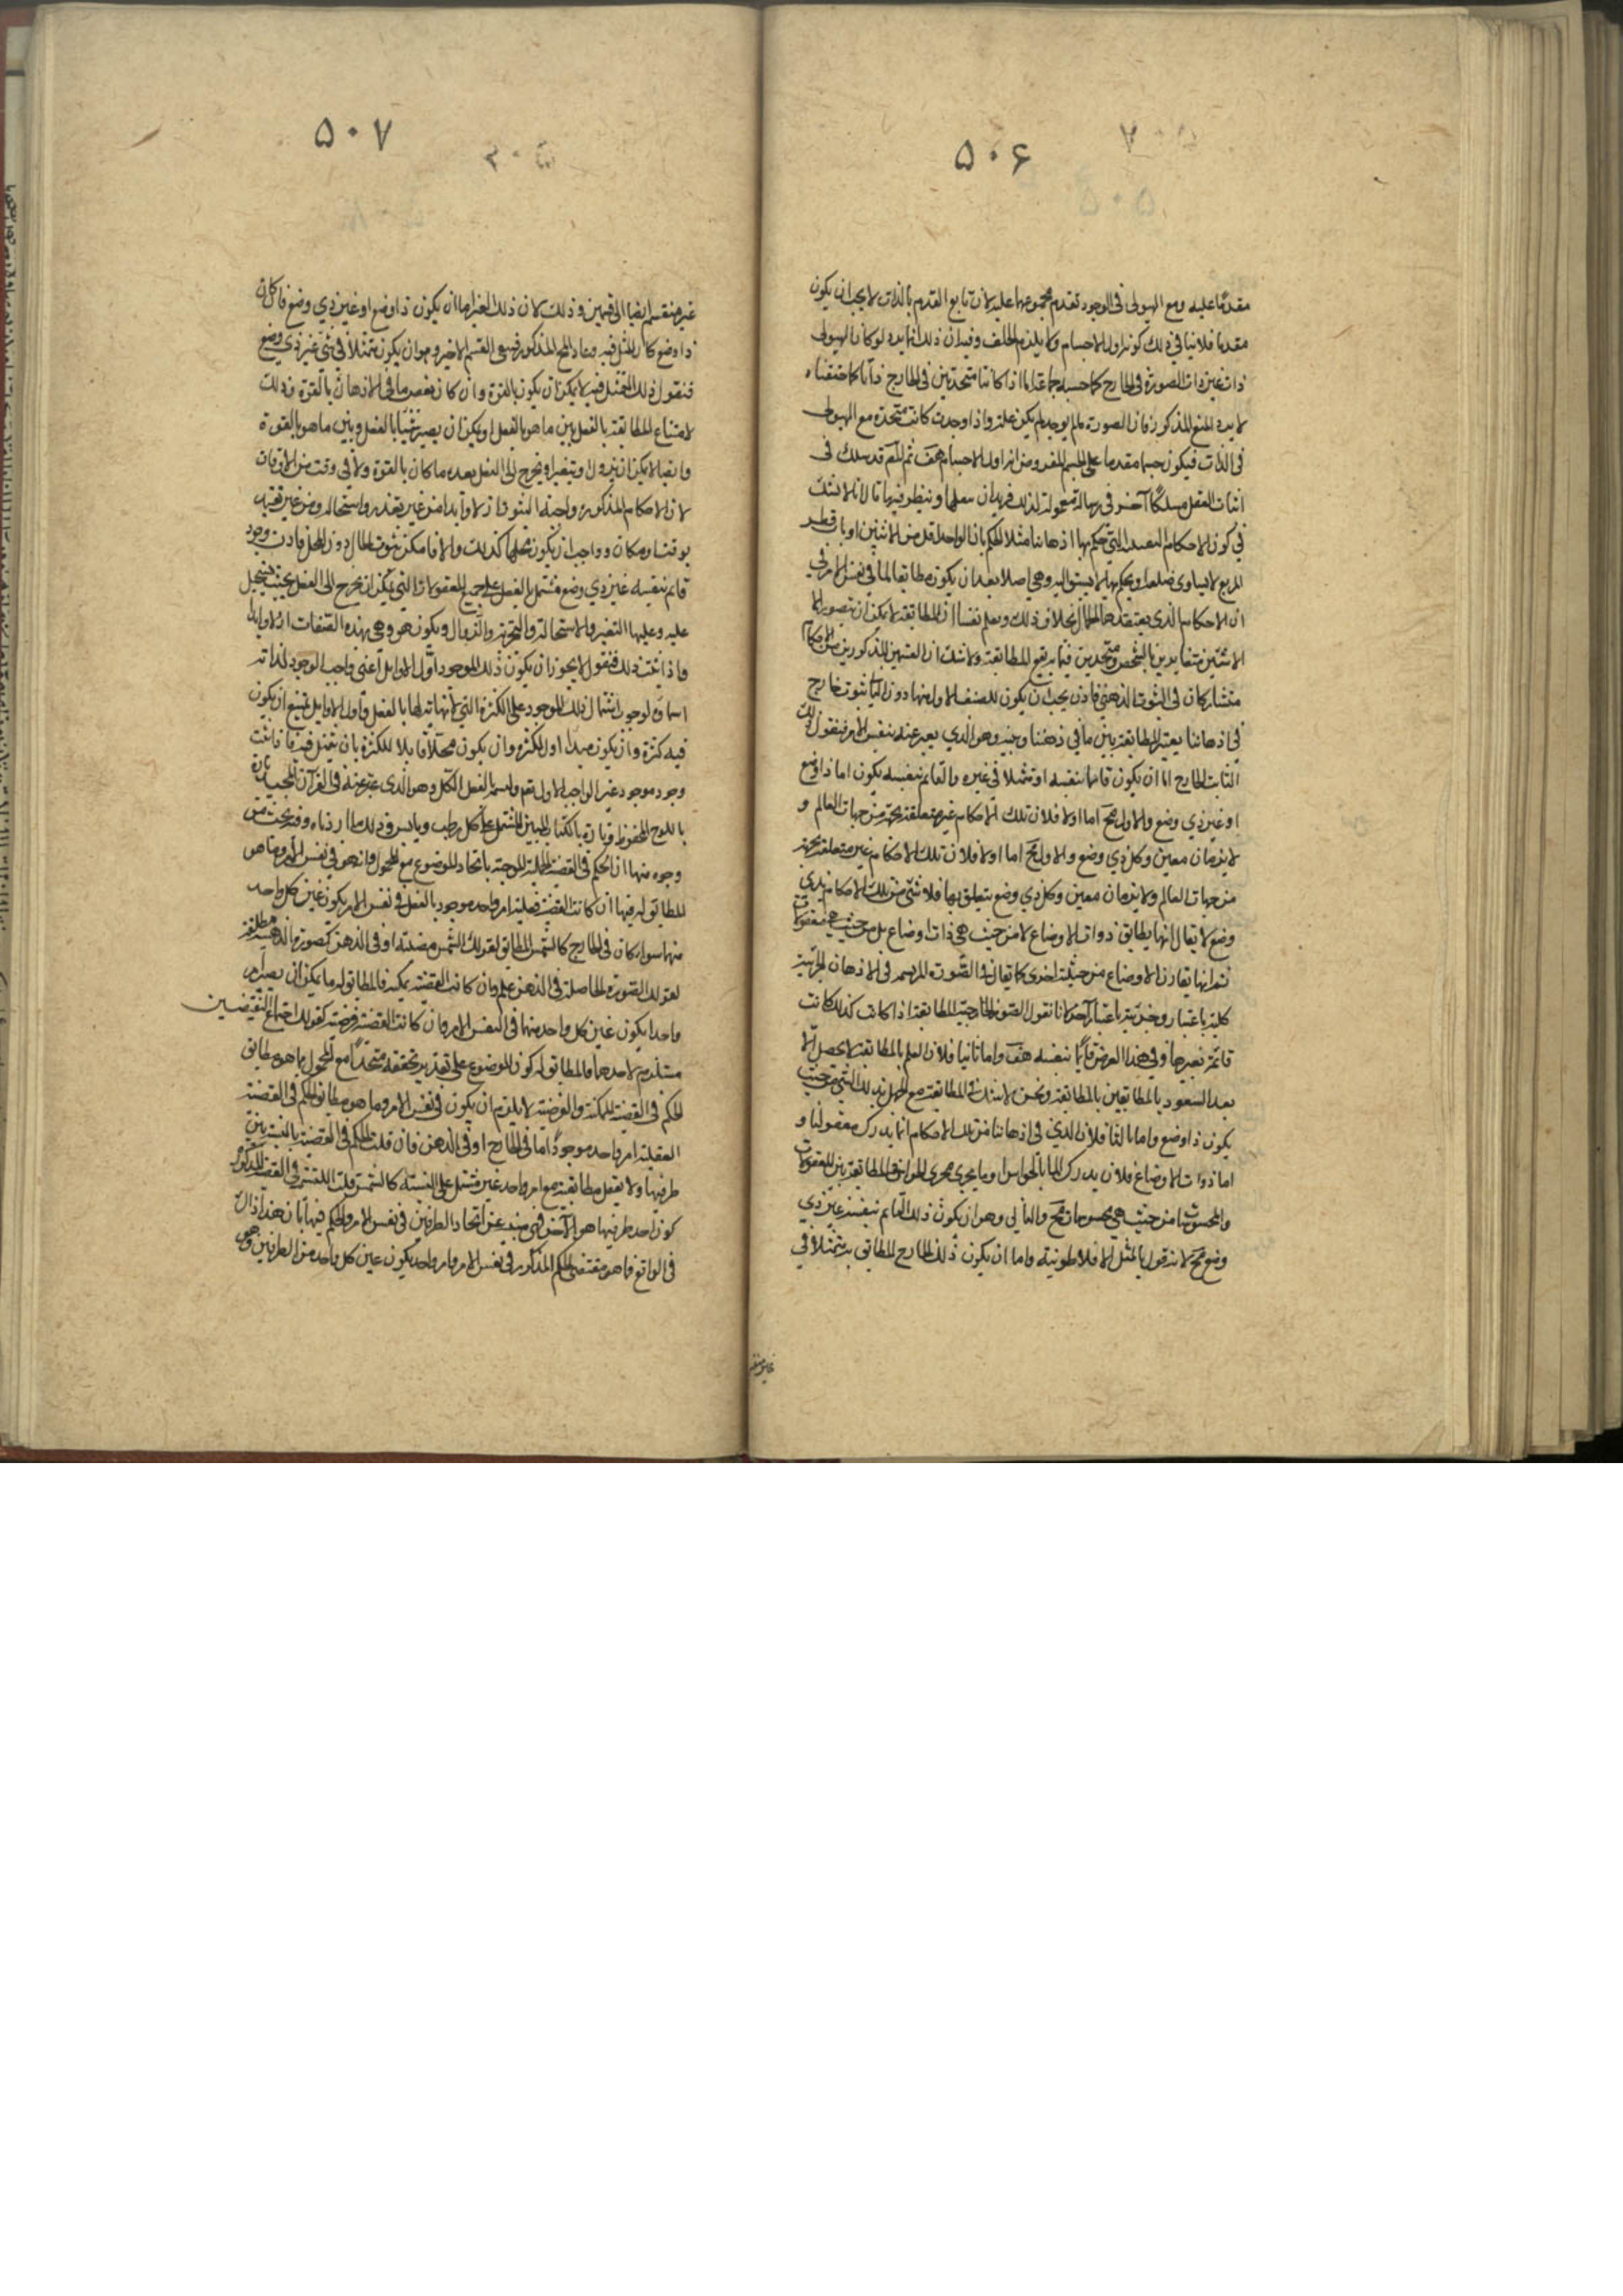 ۵۰۶
مقدما عليه ومع الهيولى فى الوجود تقدم مجموعهما عليه لان تابع القدم بالذات لا يجب ان يكون
مقدما فلا ينافى ذلك كونه اول الاجسام ولا يلزم الخلف وفيه ان ذلك انما يرد لو كان الهيولى
ذات غير ذات الصورة فى الخارج كما حسبه جماعة اما اذا كانتا متحدتين فى الخارج ذاتا كما حققناه
لا يرد المنع المذكور فان الصورة ما لم يوجد لم يكن علة واذا وجدت كانت متحدة مع الهيولى
فى الذات فيكون جسما مقدما على الجسم المفروض انه اول الاجسام هف ثم المص قد سلك فى
اثبات العقل مسلكا آخر فى رسالة معمولة لذلك فريد ان ننقلها وننظر فيها قال انا لا نشك
فى كون الاحكام اليقينية التى حكم بها اذهاننا مثلا كالحكم بان الواحد اقل من الاثنين او بان قطر
المربع لا يساوى ضلعه او يحكم بها مما لا يسبق اليه وهمى اصلا بعد ان يكون مطابقا لما فى نفس الامر فى
ان الاحكام الذى يعتقدها الجهال بخلاف ذلك ونعلم يقينا ان المطابقة لا يمكن ان تتصور الا
لا شيئين متغايرين بالشخص ومتحدين فيما يقع به المطابقة ولا شك ان الصنفين المذكورين من الاحكام
متشاركان فى الثبوت الذهنى فاذن يجب ان يكون للصنف الاول منها دون الثانى ثبوت خارج
فى اذهاننا يعتبر المطابقة بين ما فى ذهننا وبينه وهو الذى يعبر عنه بنفس الامر فنقول ذلك
الثابت الخارج اما ان يكون قائما بنفسه او متمثلا فى غيره والقائم بنفسه يكون اما ذا وضع
او غير ذى وضع والاول مح اما اولا فلان تلك الاحكام غير متعلقة بجهة من جهات العالم و
لا بزمان معين وكل ذى وضع والاول مح اما اولا فلان تلك الاحكام غير متعلقة بجهة
من جهات العالم ولا بزمان معين وكل ذى وضع يتعلق بها فلا شئ من تلك الاحكام بذى
وضع لا يقال انها يطابق ذوات الاوضاع لا من حيث هى ذات اوضاع بل من حيث هى معقولات
ثم انها يقارن الاوضاع من حيثية اخرى كما يقال فى الصورة المرتسمة فى الاذهان الجزئية
كلية باعتبار وجزئية باعتبار آخر لانا نقول الصورة الخارجية المطابقة اذا كانت كذلك كانت
قائمة بغيرها وفى هذا الفرض قائما بنفسه هف واما ثانيا فلان العلم بالمطابقة لا يحصل الا
بعد الشعور بالمطابقين بالمطابقة ونحن لا نشك فى المطابقة مع الجهل بذلك الشئ من حيث
يكون ذا وضع واما ثالثا فلان الذى فى اذهاننا من تلك الاحكام انما يدرك بعقولنا و
اما ذوات الاوضاع فلا يدركها الا بالحواس او ما يجرى مجرى الحواس والمطابقة بين المعقولات
والمحسوسات من حيث هى محسوسات مح والثانى وهو ان يكون ذلك القائم بنفسه غير ذى
وضع مح لانه قول بالمثل الافلاطونية واما ان يكون ذلك الخارج المطابق به متمثلا فى
۵۰۷
غيره منقسم ايضا الى قسمين وذلك لان ذلك الغير اما ان يكون ذا وضع او غير ذى وضع فان كان
ذا وضع كان المثل فيه وعاد المح المذكور فبقى القسم الاخير وهو ان يكون متمثلا فى شئ غير ذى وضع
فنقول ذلك التمثل فيه لا يمكن ان يكون بالقوة وان كان بعض ما فى الاذهان بالقوة وذلك
لامتناع المطابقة بالفعل بين ما هو بالفعل او يمكن ان يصير وقتا بالفعل وبين ما هو بالقوة
وايضا لا يمكن ان يزول او يتغير او يخرج الى الفعل بعد ما كان بالقوة ولا فى وقت من الاوقات
لان الاحكام المذكورة واجبة الثبوت ازلا وابدا من غير تغير واستحالة ومن غير تقيد
بوقت ومكان وواجب ان يكون محلها كذلك والا فامكن ثبوت الحال دون المحل فاذن وجود
قائم بنفسه غير ذى وضع مشتمل بالفعل على جميع المعقولات التى يمكن ان يخرج الى الفعل بحيث يستحيل
عليه وعليها التغير والاستحالة والتجدد والزوال ويكون هو وهى بهذه الصفات ازلا وابدا
واذا ثبت ذلك فنقول لا يجوز ان يكون ذلك الموجود اول الاوايل اعنى واجب الوجود لذاته
اسماؤه لوجوب اشتمال ذلك الموجود على الكثرة التى لا نهاية لها بالفعل واول الاوايل يمتنع ان يكون
فيه كثرة وان يكون مبدأ اول للكثرة وان يكون محلا قابلا للكثرة بان يتمثل فيه فاذا ثبت
وجود موجود غير الواجب الاول تعم ولنسمه العقل الكل وهو الذى عبر عنه فى القرآن المجيد تارة
باللوح المحفوظ وتارة بالكتاب المبين المشتمل على كل رطب ويابس وذلك ما اردناه وفيه بحث من
وجوه منها ان الحكم فى القضية الحملية الموجبة باتحاد الموضوع مع المحمول وانه هو فى نفس الامر وما هو
المطابق له فيها ان كانت القضية فعلية امر واحد موجود بالفعل فى نفس الامر يكون عين كل واحد
منهما سواء كان فى الخارج كالشمس المطابق لقولك الشمس مضيئة او فى الذهن كصورتها الذهنية مطابقة
لقولك الصورة الحاصلة فى الذهن علم وان كانت القضية ممكنة فالمطابق له ما يمكن ان يصير امر
واحدا يكون عين كل واحد منهما فى النفس الامر وان كانت القضية فرضية كقولك اجتماع النقيضين
مستلزم لاحدهما فالمطابق له كون الموضوع على تقدير تحققه متحدا مع المحمول فما هو مطابق
الحكم فى القضية الممكنة والفرضية لا يلزم ان يكون فى نفس الامر وما هو مطابق الحكم فى القضية
الفعلية امر واحد موجود اما فى الخارج او فى الذهن فان قلت الحكم فى القضية بالنسبة بين
طرفيها ولا يعقل مطابقته مع امر واحد غير مشتمل على النسبة كالشمس قلت النسبة فى القضية المذكورة
كون احد طرفيها هو الآخر فهى منبئة عن اتحاد الطرفين فى نفس الامر والحكم فيها بان هذا ذاك
فى الواقع فما هو مقتضى الحكم المذكور فى نفس الامر امر واحد يكون عين كل واحد من الطرفين وهو